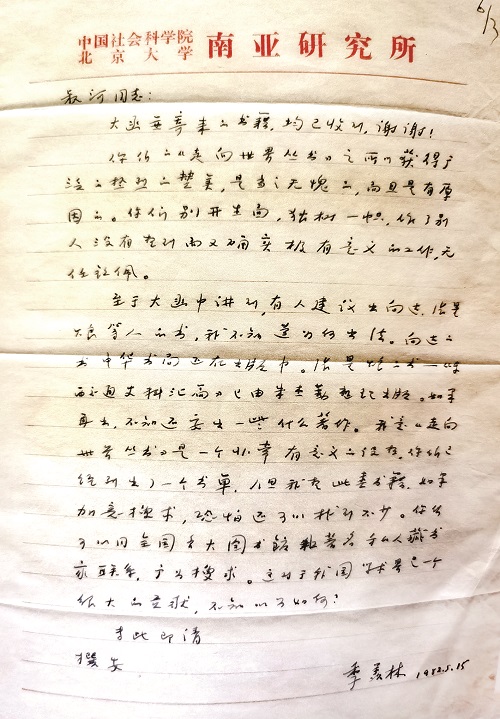 6/13
中国社会科学院
北京大学 南亚研究所
叔河同志:
大函并寄来之书籍,均已收到,谢谢!
你们之《走向世界丛书》之所以获得广
泛之热烈之赞美,是当之无愧之,而且是有原
因的。你们别开生面,独树一帜,做了别
人没有想到而又确实极有意义的工作,无
任钦佩。
至于大函中讲到,有人建议出向达、
等人的书,我不知道如何出法。向达之
书中华书局正在出版中。之书
《 交通史料汇 》已由朱杰勤整理出版。如果
再出,不知还要出一些什么著作。我意《走向
世界丛书》是一个非常有意义之,你们已
经列出了一个书单,但我想此类书籍,如果
加意搜求,恐怕还可以找到不少。你们
可以同全国各大图书馆和著名私人藏书
家联系,广为搜求。这对于我国学术界是一个
很大的贡献,不知以为如何?
专此即请
撰安
季羡林 1982.5.15